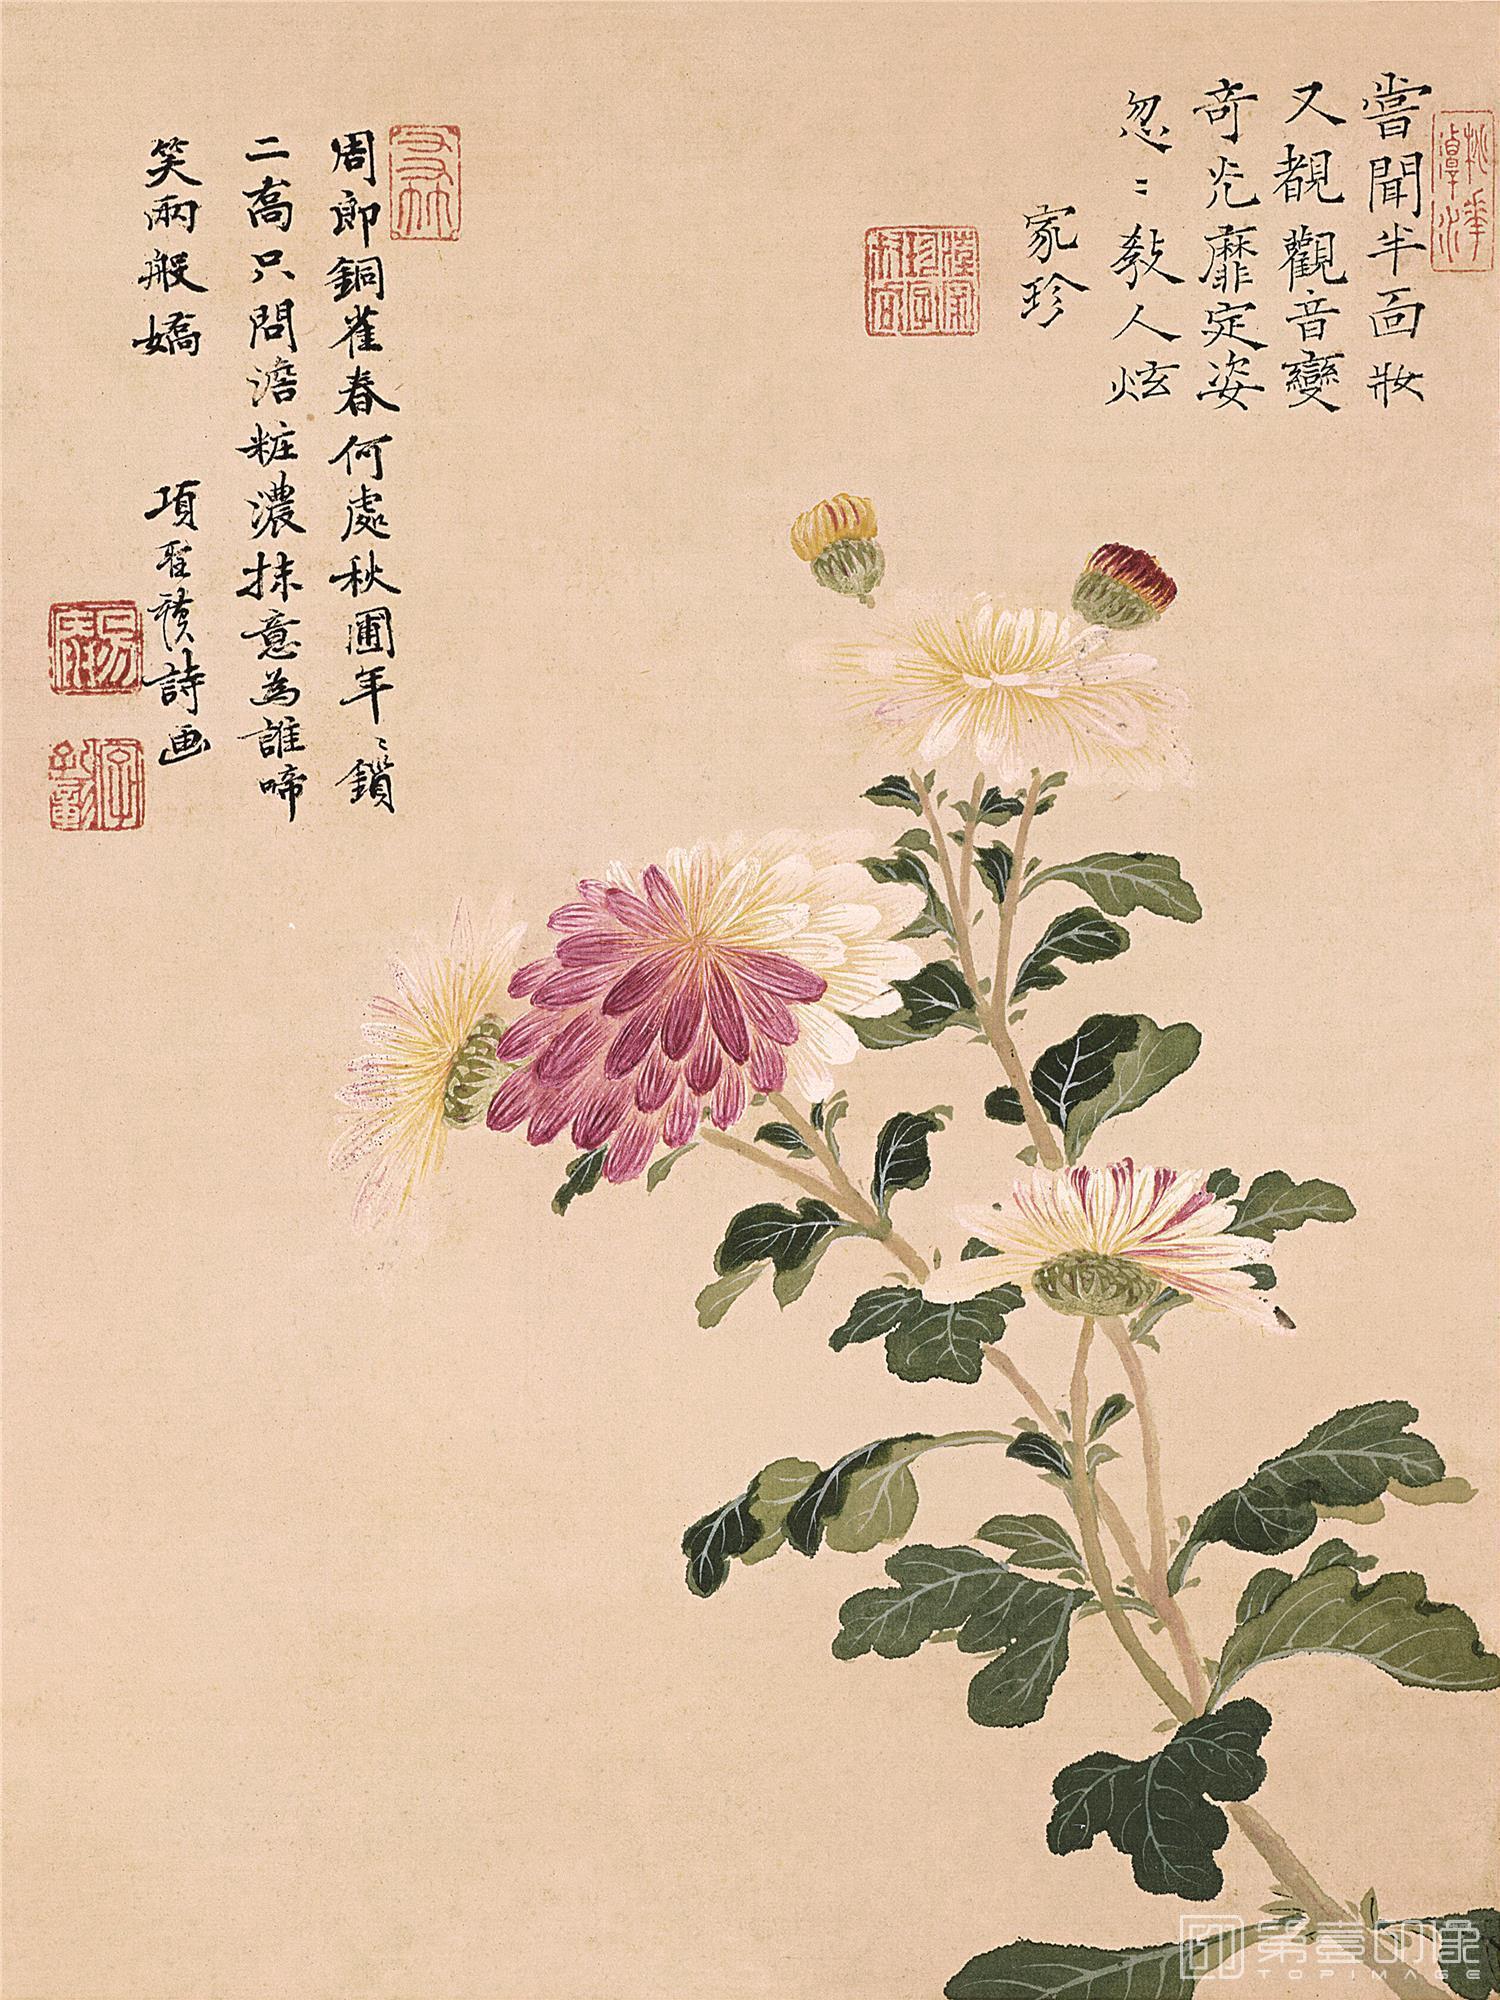 嘗聞半面妝
又覩觀音變
奇光靡定姿
忽〻教人炫
家珍
周郎銅雀春何處秋圃年〻鎖
二喬只問澹粧濃抹意為誰啼
笑兩般嬌
項聖謨詩画
第壹印像
TOPIMAGE